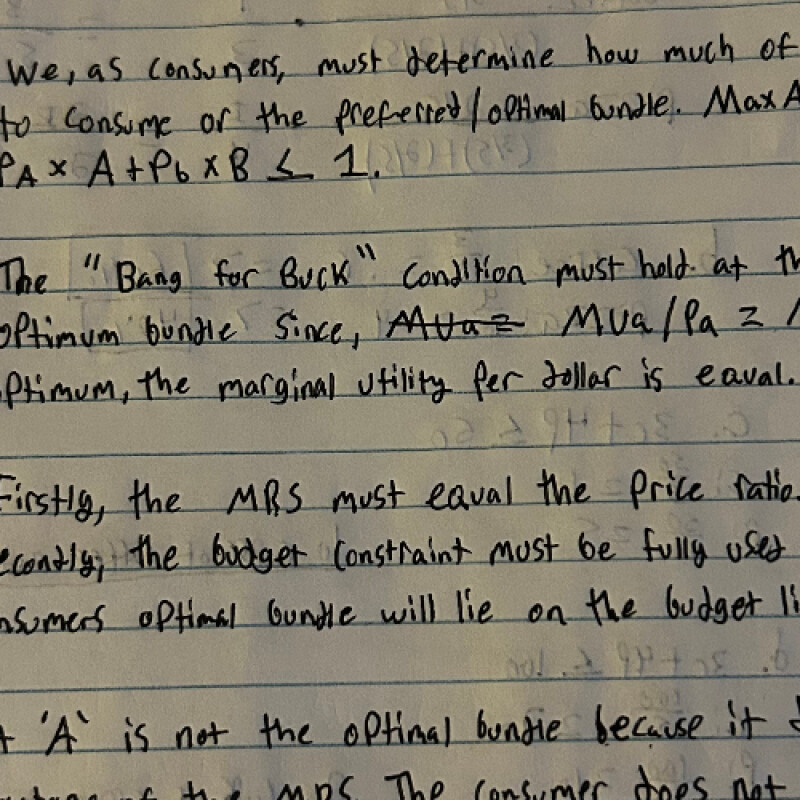 We, as consumers, must determine how much of
to consume or the preferred/optimal bundle. Max A
PA x A + Pb x B ≤ 1.
The "Bang for Buck" condition must hold at th
optimum bundle since, MUa = MUa/Pa =
optimum, the marginal utility per dollar is equal.
Firstly, the MRS must equal the price ratio.
econdly, the budget constraint must be fully used
nsumers optimal bundle will lie on the budget li
t 'A' is not the optimal bundle because it
of the MRS. The consumer does not